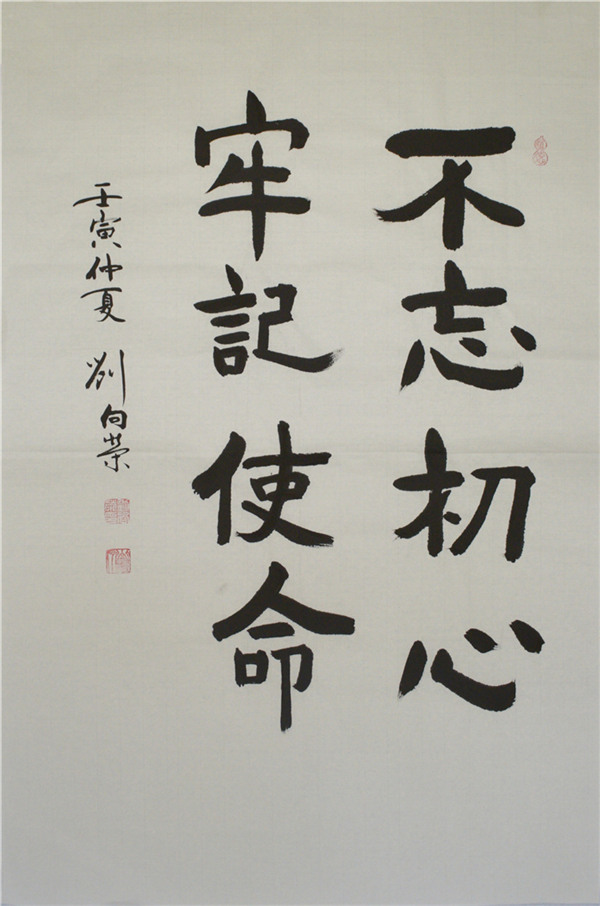 不忘初心
牢記使命
壬寅仲夏 劉向榮